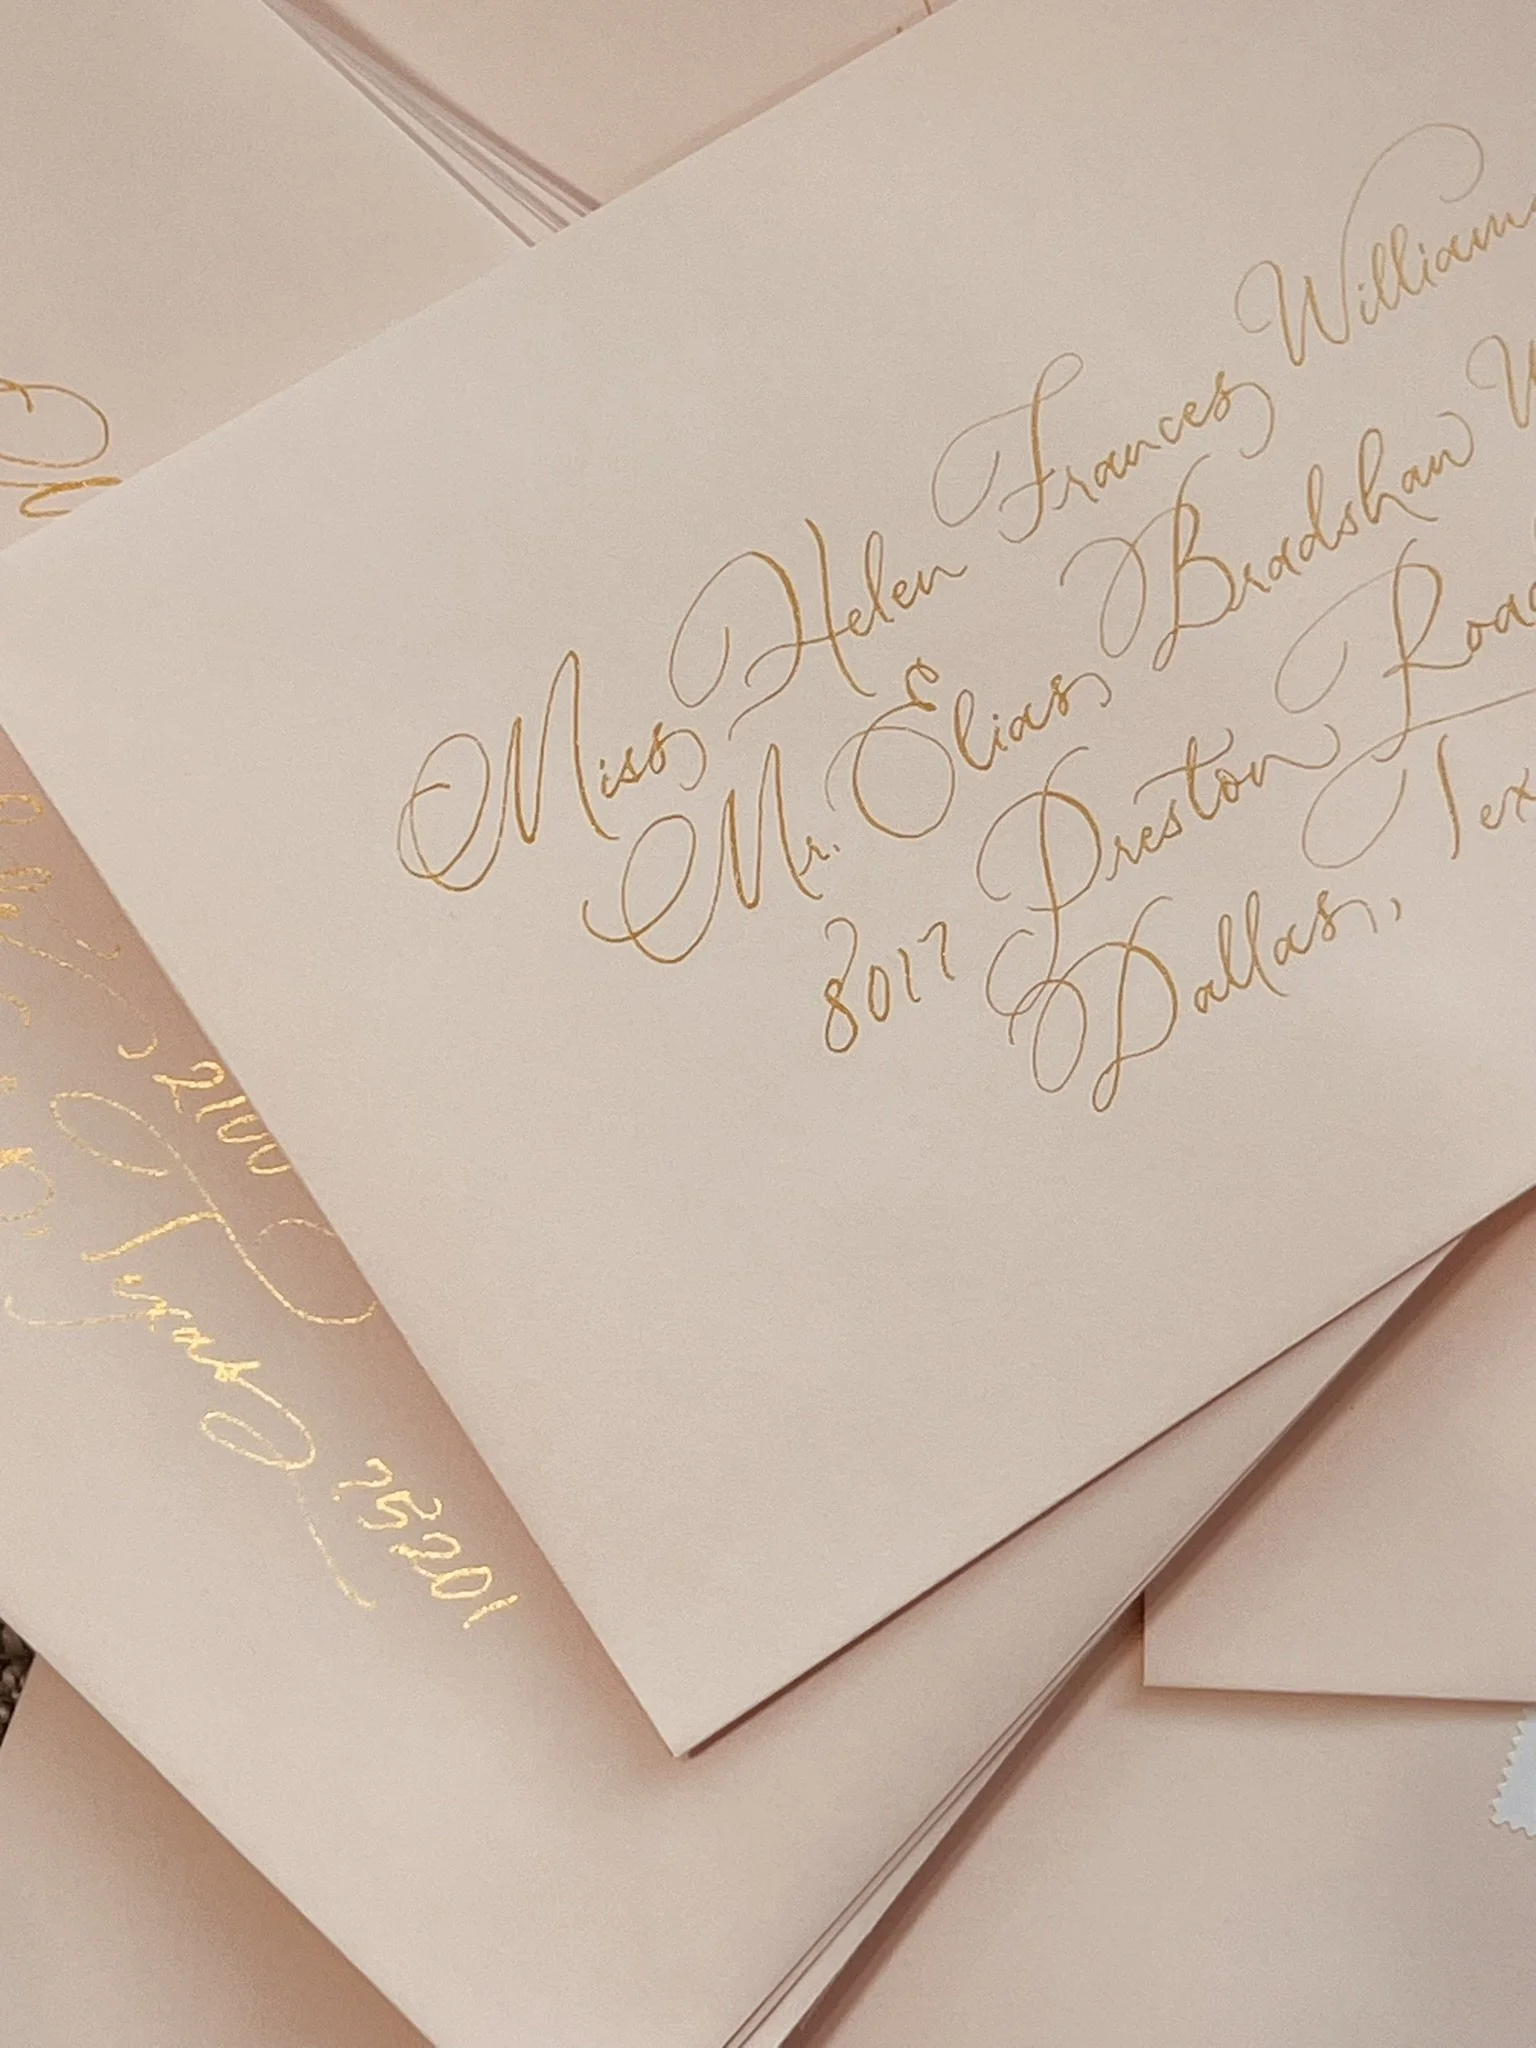 Miss Helen Frances Williams
Mr. Elias Bradshaw
8017 Preston Road
Dallas, Tex
2100
Texas 75201